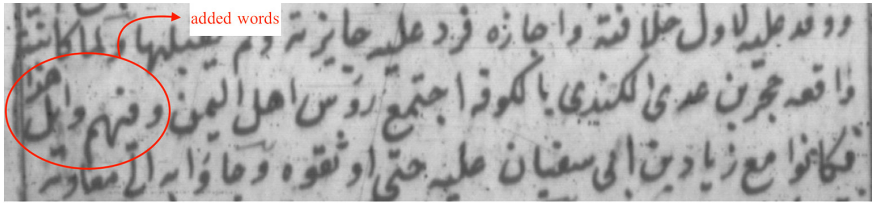 added words
ووفد عليه لاول خلافته واجازه فرد عليه جايزته ولم يقبلها ولما كانت
واقعه حجر بن عدي الكندي بالكوفه اجتمع روس اهل اليمن وفيهم وايل هذا
فكانوا مع زياد بن ابي سفيان عليه حتى اوثقوه وجاوا به الى معاوية